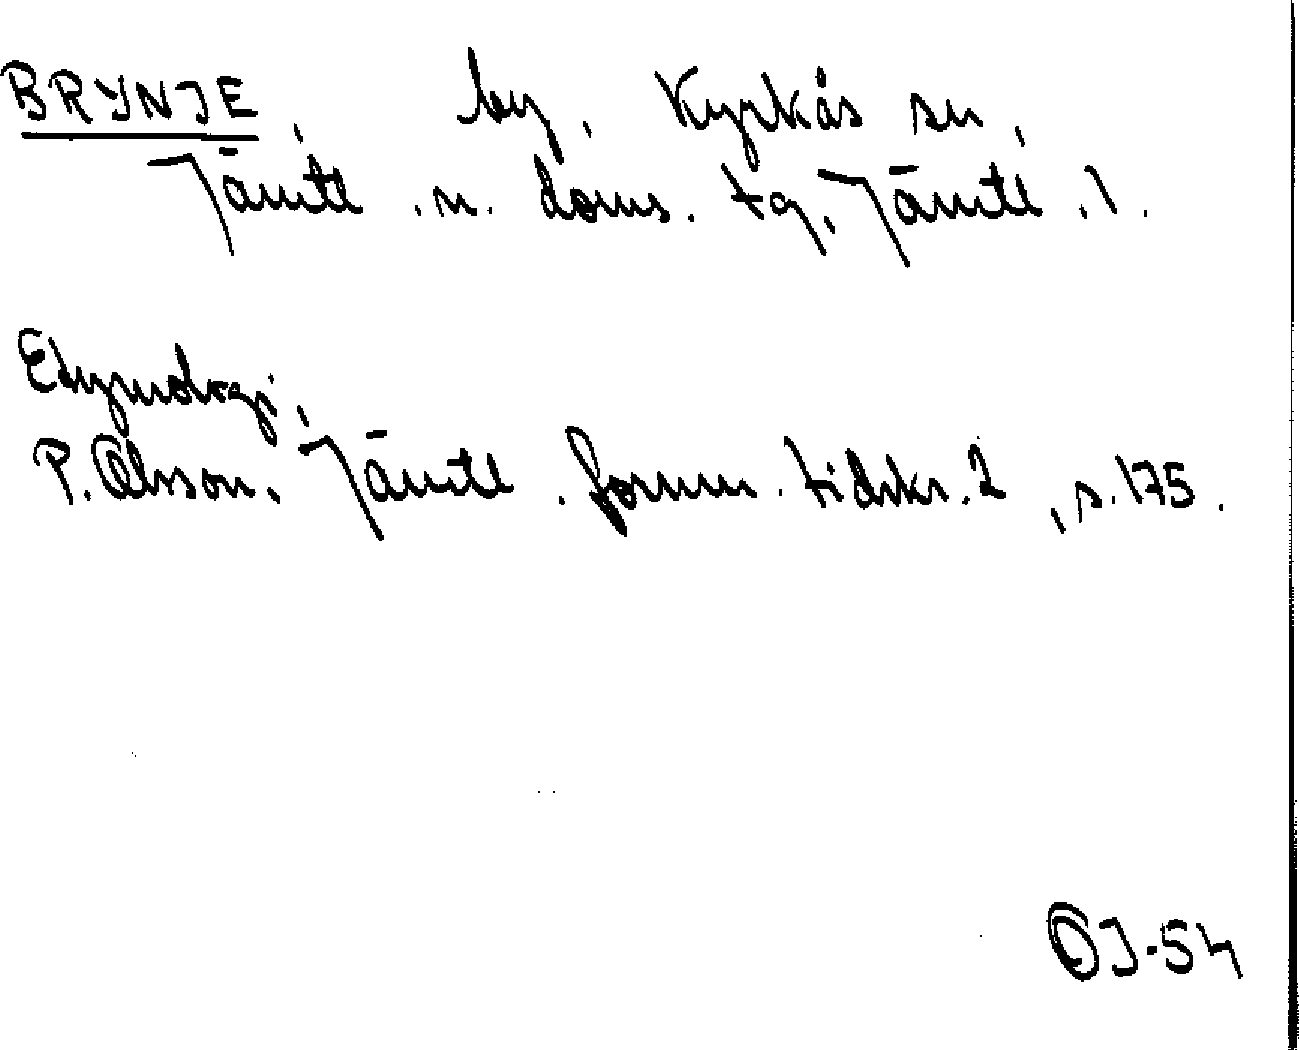 BRYNJE, by, Kyrkås sn,
Jämtl. n. doms. tg, Jämtl. l.
Etymologi,
P. Olsson, Jämtl. fornm. tidskr. 2, s. 175.
OJ-54